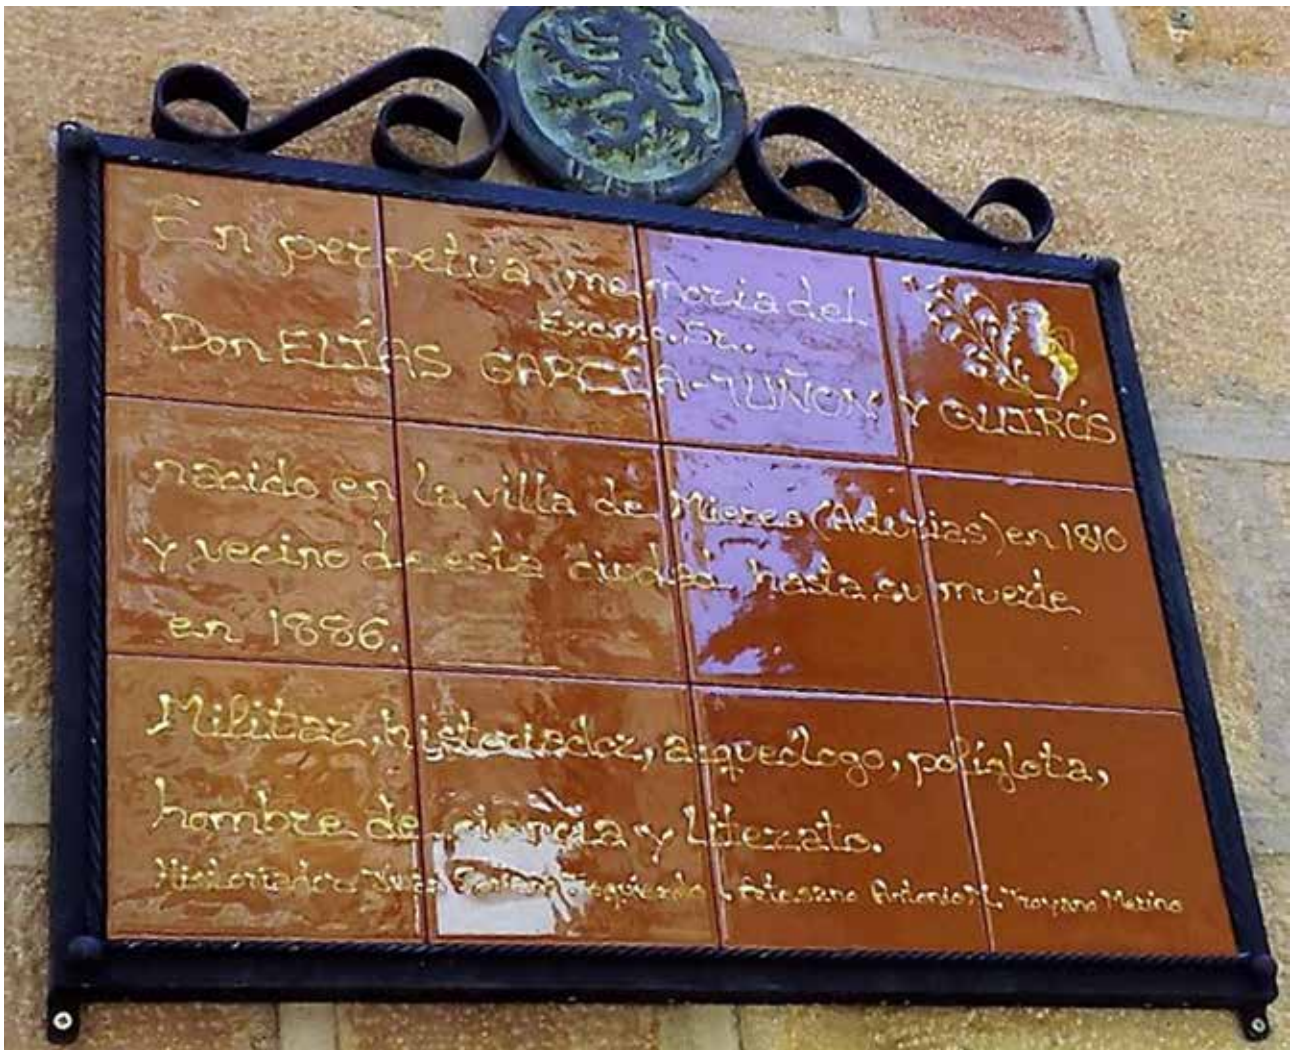 En perpetua memoria del
Excmo. Sr.
Don ELÍAS GARCÍA-TUÑON Y QUIRÓS
nacido en la villa de Mieres (Asturias) en 1810
y vecino de esta ciudad hasta su muerte
en 1886.
Militar, historiador, arqueólogo, políglota,
hombre de ciencia y literato.
Historiador Juan Izquierdo Artesano Antonio M. Troyano Merino